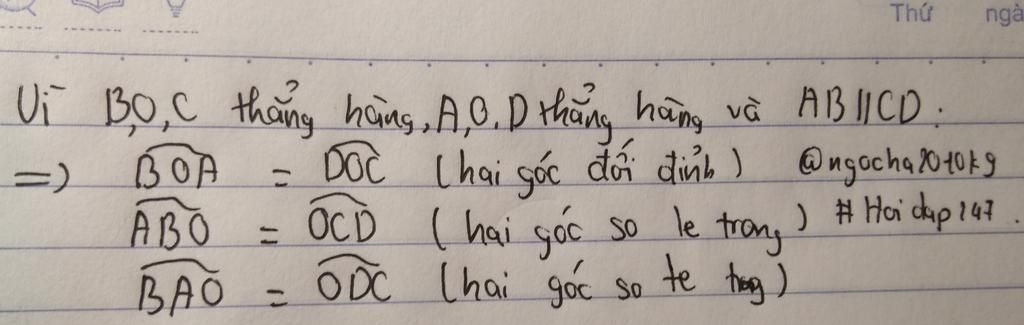 Thứ ngà
Vì B,O,C thẳng hàng, A,O,D thẳng hàng và AB//CD.
=> BOA = DOC (hai góc đối đỉnh) @ngocha2010kg
ABO = OCD (hai góc so le trong) # Hoidap247.
BAO = ODC (hai góc so le trong)